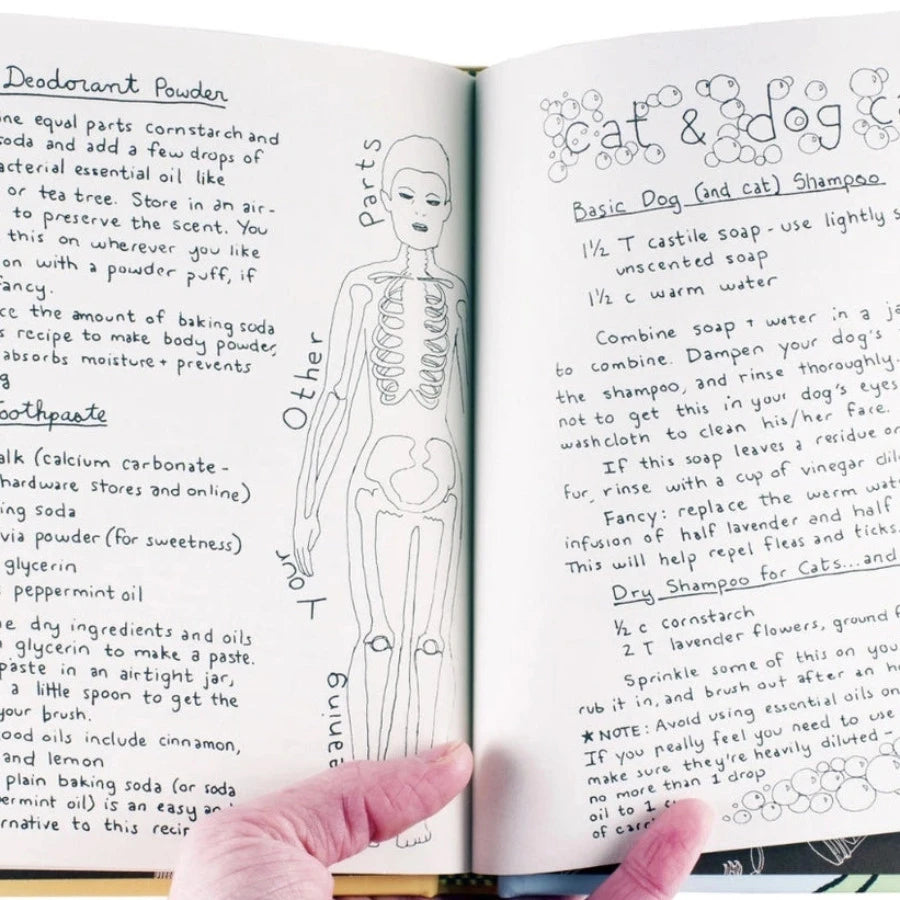 Deodorant Powder
ne equal parts cornstarch and
soda and add a few drops of
acterial essential oil like
or tea tree. Store in an air-
to preserve the scent. You
this on wherever you like
on with a powder puff, if
fancy.
ce the amount of baking soda
s recipe to make body powder,
absorbs moisture + prevents
g
Toothpaste
alk (calcium carbonate -
hardware stores and online)
ing soda
via powder (for sweetness)
glycerin
peppermint oil
e dry ingredients and oils
glycerin to make a paste.
paste in an airtight jar,
a little spoon to get the
your brush.
ood oils include cinnamon,
and lemon
plain baking soda (or soda
ermint oil) is an easy an
rnative to this recip
Parts
Other
Your
eaning
cat & dog ca
Basic Dog (and cat) Shampoo
1½ T castile soap - use lightly s
unscented soap
1½ c warm water
Combine soap + water in a ja
to combine. Dampen your dog's
the shampoo, and rinse thoroughly.
not to get this in your dog's eyes
washcloth to clean his/her face.
If this soap leaves a residue on
fur, rinse with a cup of vinegar dil
Fancy: replace the warm wat
infusion of half lavender and half
This will help repel fleas and ticks.
Dry Shampoo for Cats...and
½ c cornstarch
2 T lavender flowers, ground f
Sprinkle some of this on you
rub it in, and brush out after an h
★NOTE: Avoid using essential oils on
If you really feel you need to use
make sure they're heavily diluted -
no more than 1 drop
oil to 1 c
of carri